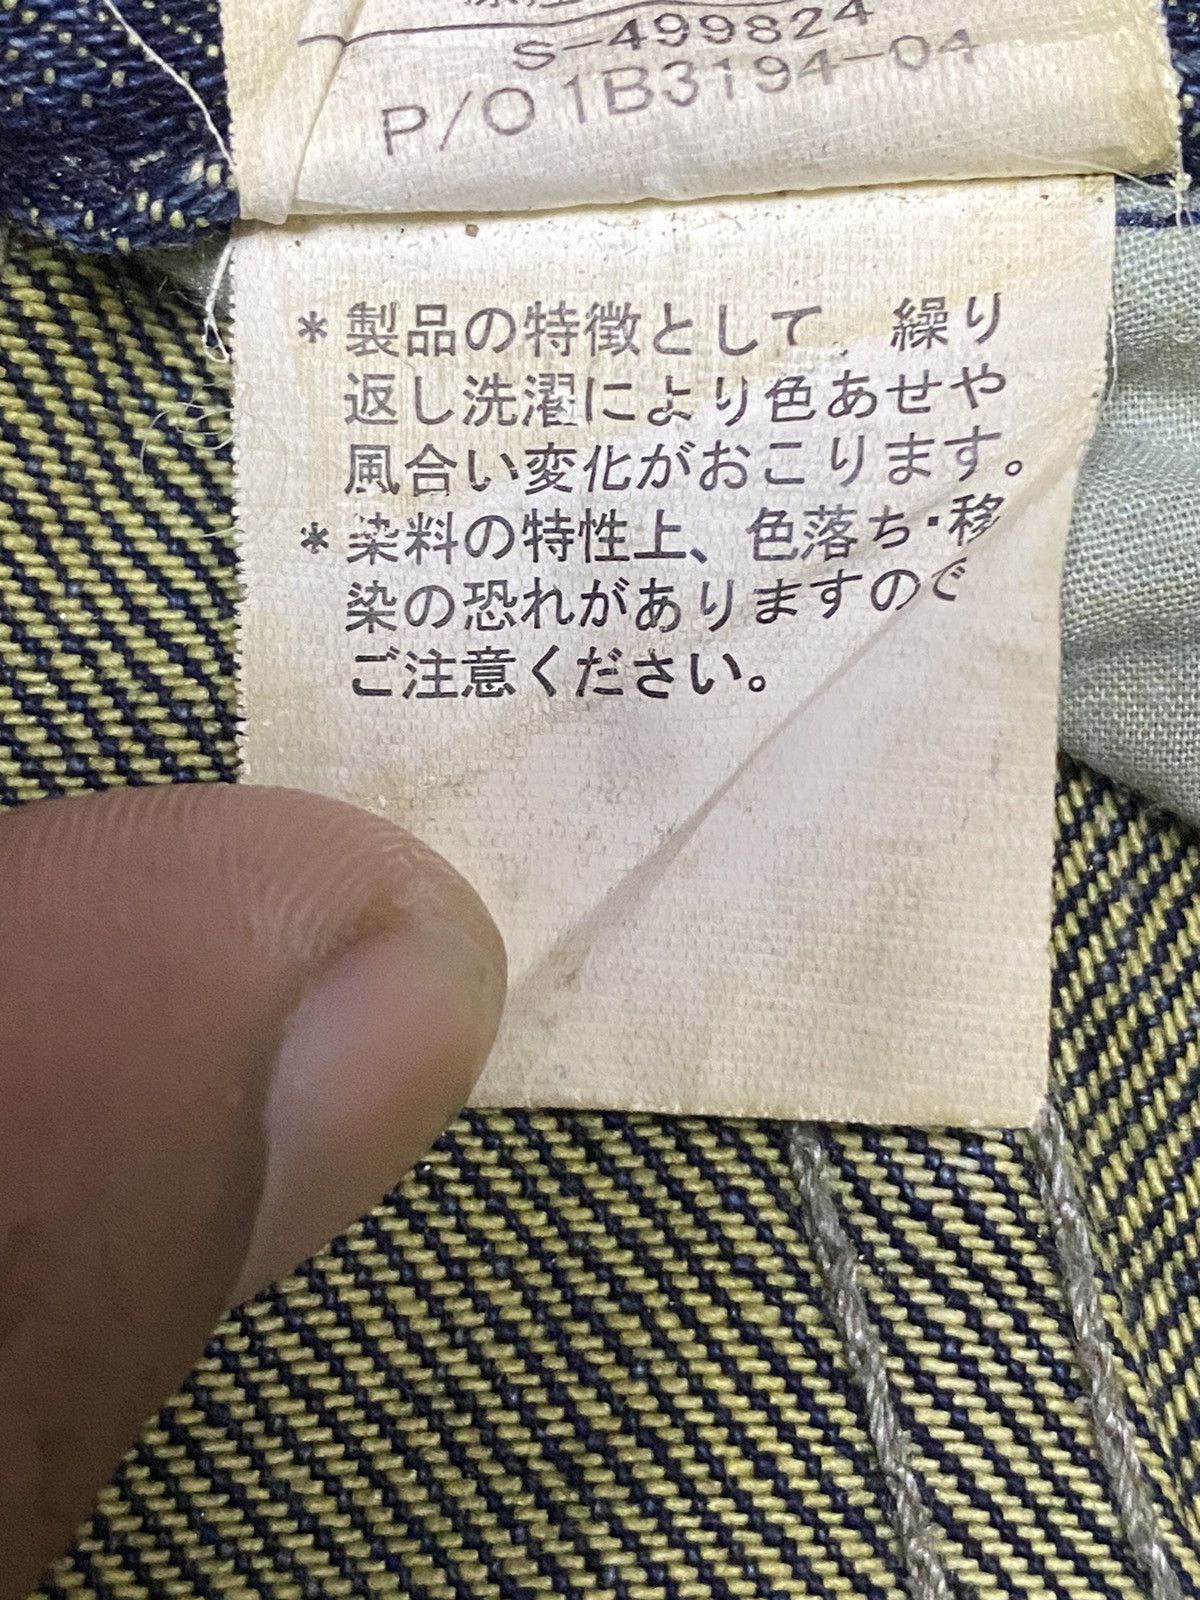 S-499824
P/O 1B3194-04
*製品の特徴として、繰り
返し洗濯により色あせや
風合い変化がおこります。
*染料の特性上、色落ち・移
染の恐れがありますので
ご注意ください。